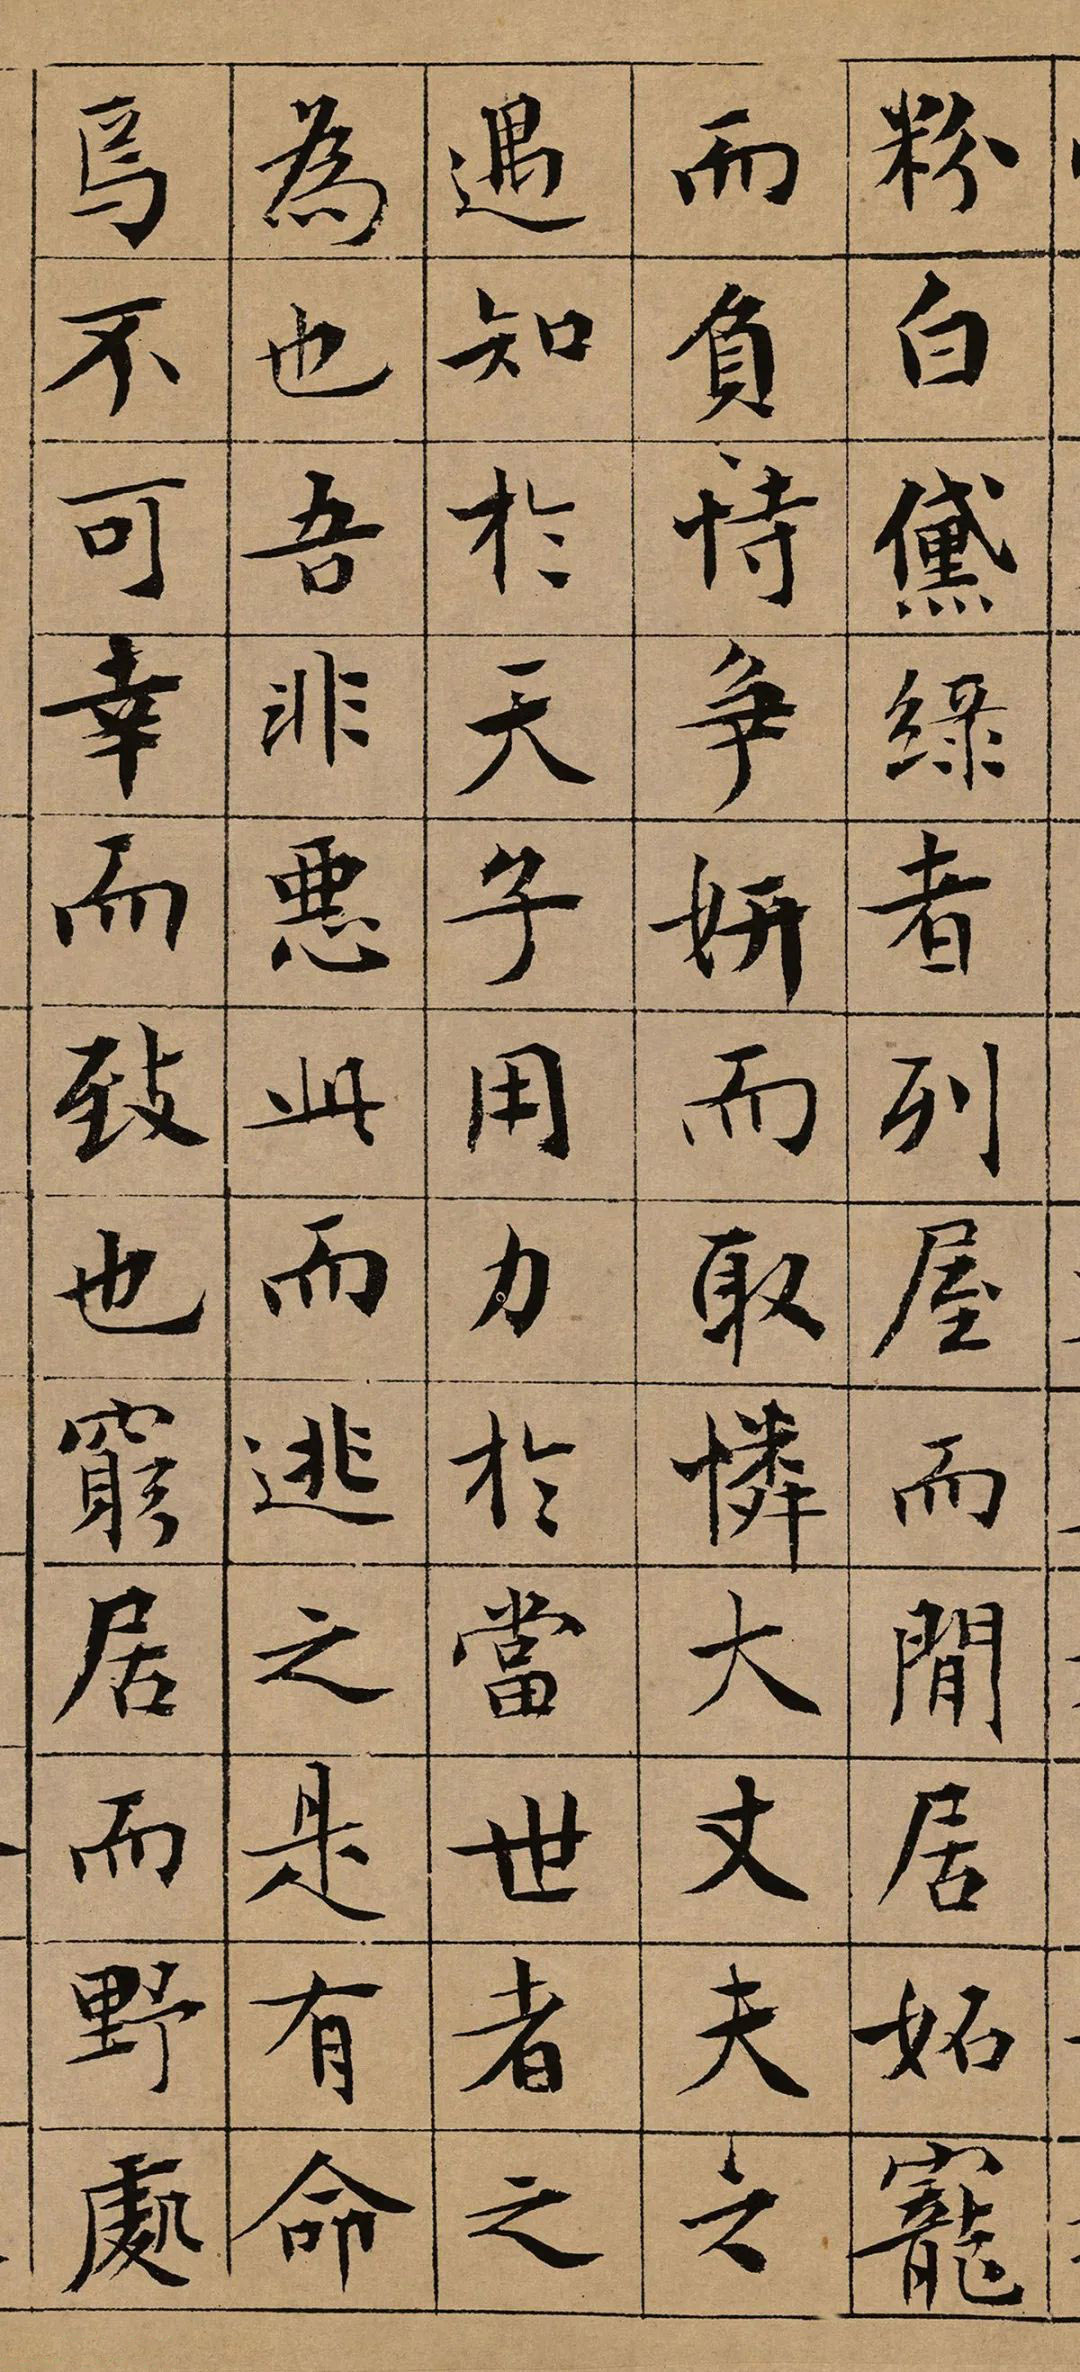 粉白黛綠者列屋而閒居妬寵
而負恃爭妍而取憐大丈夫之
遇知於天子用力於當世者之
為也吾非惡此而逃之是有命
焉不可幸而致也窮居而野處